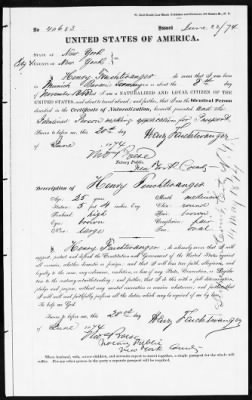 No. 40623 Issued June 22/74
UNITED STATES OF AMERICA.
STATE OF New York
COUNTY OF New York
I, Henry Feuchtwanger do swear that I was born
in Munich Bavaria Germany on the 9th day
of November that I am a NATURALIZED AND LOYAL CITIZEN OF THE
UNITED STATES, and about to travel abroad; and further, that I am the identical Person
described in the Certificate of Naturalization, herewith presented and the
Identical Person making application for a Passport
Sworn to before me, this 20th day
of June 1874 Henry Feuchtwanger
Notary Public
New York County
Description of Henry Feuchtwanger
Age, 25 years Mouth medium
Stature, 5 feet 4 inches Eng. Chin round
Forehead high Hair brown
Eyes brown Complexion fair
Nose large Face oval
I, Henry Feuchtwanger do solemnly swear that I will
support, protect and defend the Constitution and Government of the United States against
all enemies, whether domestic or foreign; and that I will bear true faith, allegiance, and
loyalty to the same, any ordinance, resolution, or law of any State, Convention, or Legislature
to the contrary notwithstanding; and further, that I do this with a full determination,
pledge and purpose, without any mental reservation or evasion whatsoever; and further, that
I will well and faithfully perform all the duties which may be required of me by law,
So help me God
Sworn to before me, this 20th day
of June 1874 Henry Feuchtwanger
Notary Public
New York County
When husband, wife, minor children, and servants expect to travel together, a single passport for the whole will
suffice. For any other person in the party a separate passport will be required.